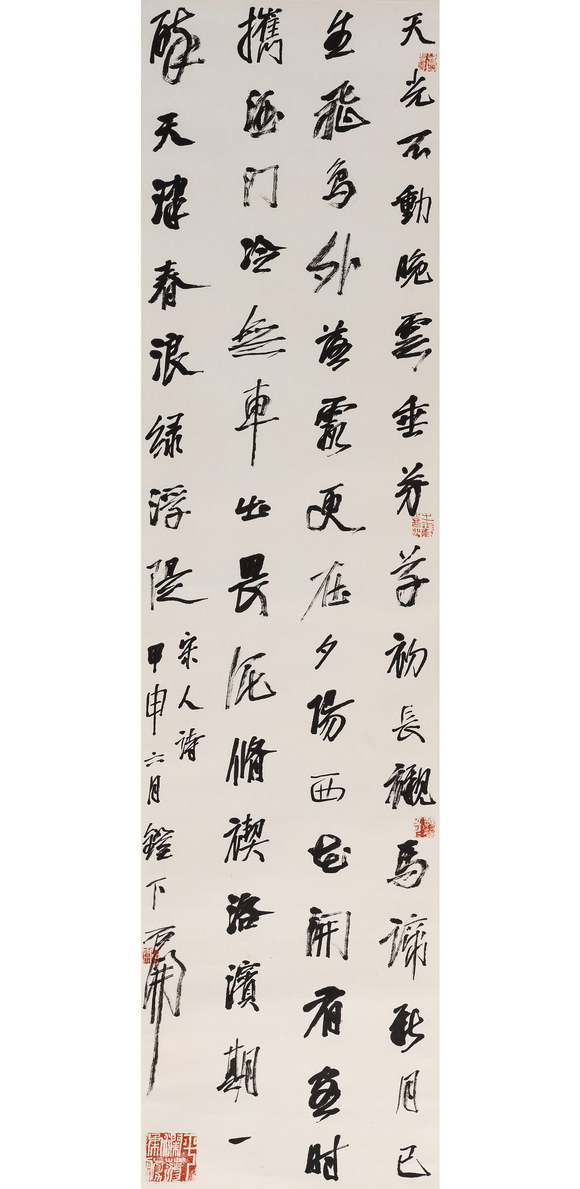 天光不動晚雲垂芳草初長襯馬蹄新月已
生飛鳥外落霞更在夕陽西花開有客时
攜酒門冷無車出畏泥脩禊洛濱期一
醉天津春浪綠浮隄
宋人詩
甲申六月鐙下石開